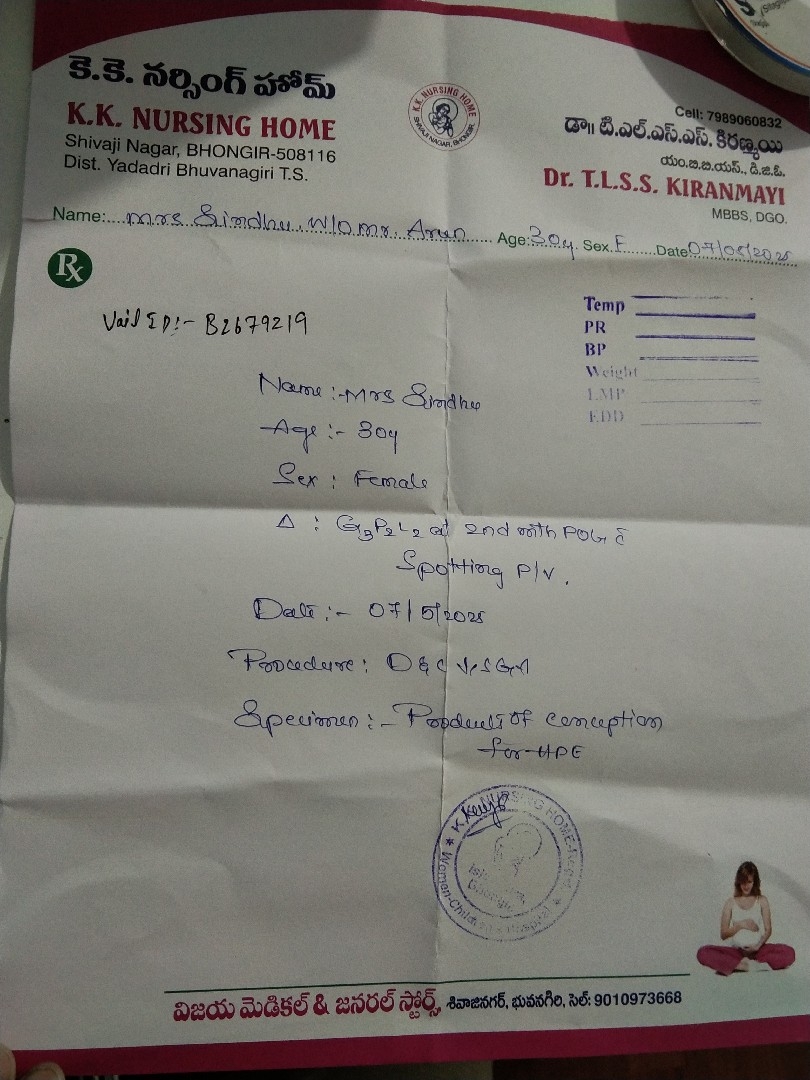 కె.కె. నర్సింగ్ హోమ్
K.K. NURSING HOME
Shivaji Nagar, BHONGIR-508116
Dist. Yadadri Bhuvanagiri T.S.
K.K. NURSING HOME
SHIVAJI NAGAR, BHONGIR.
Cell: 7989060832
డా॥ టి.ఎల్.ఎస్.ఎస్. కిరణ్మయి
యం.బి.బి.యస్., డి.జి.ఓ.
Dr. T.L.S.S. KIRANMAYI
MBBS, DGO.
Name:....Mrs Sindhu. W/o Mr. Arun..... Age:30y. Sex.F......Date07/05/2025
Rx
Vail ID:- B2679219
Temp
PR
BP
Weight
LMP
EDD
Name :- Mrs Sindhu
Age :- 30y
Sex : Female
Δ : G3P2L2 at 2nd mth POG c̄
Spotting P/V.
Date :- 07/5/2025
Procedure : D&C
Specimen :- Products of conception
for HPE
NURSING HOME
Women-Children's Hospital
విజయ మెడికల్ & జనరల్ స్టోర్స్, శివాజినగర్, భువనగిరి, సెల్: 9010973668